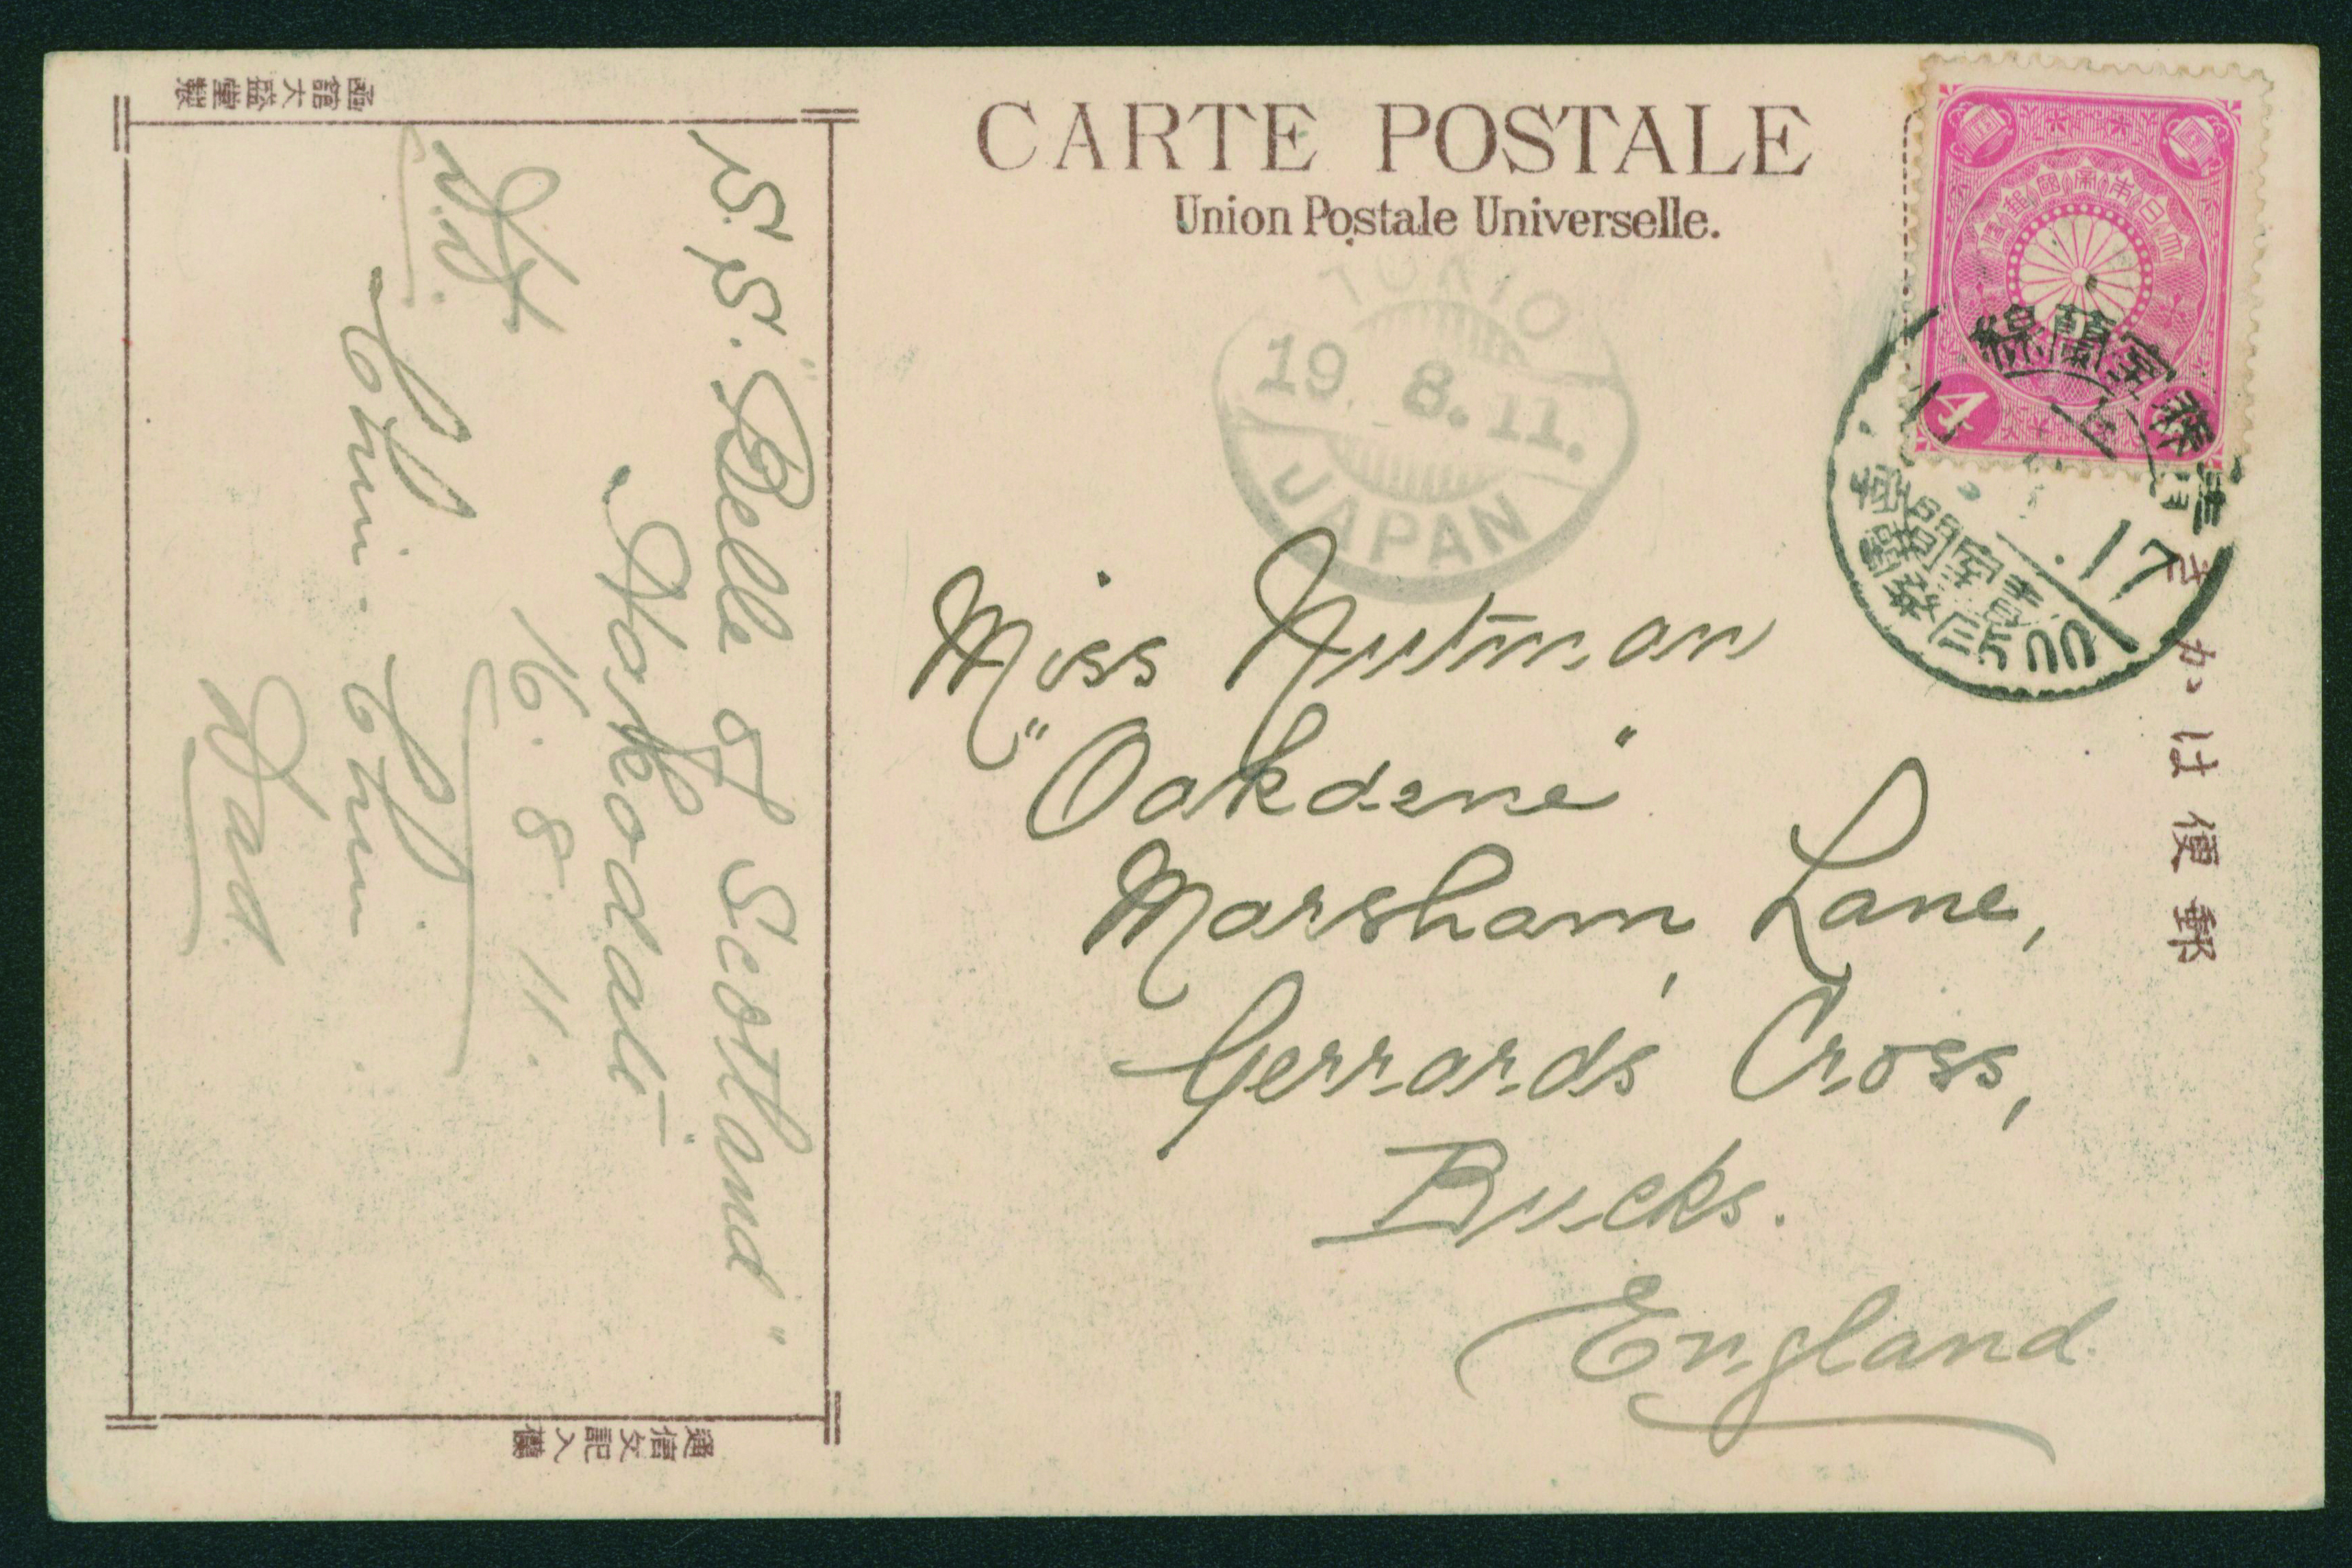 CARTE POSTALE
Union Postale Universelle.
函館大盛堂製
S.S. "Belle of Scotland"
Hakodate
16.8.11.
Chin. Chin
Dad.
通信文記入欄
TOKIO
19. 8. 11.
JAPAN
大日本帝國郵便
4
室蘭線
Miss Nutman
"Oakdene"
Marsham Lane,
Gerrards Cross,
Bucks.
England.
郵便はかき